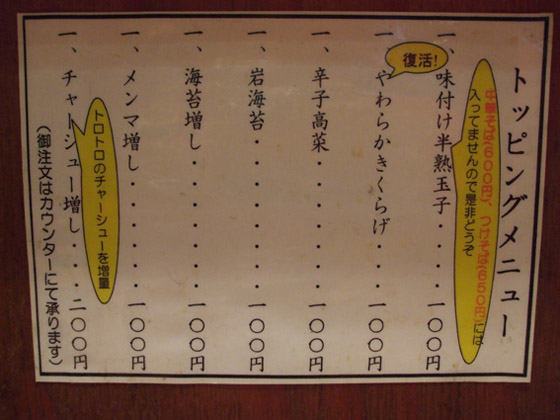 トッピングメニュー
中華そば(600円)、つけそば(650円)には
入ってませんので是非どうぞ
一、味付け半熟玉子・・・・一〇〇円
復活!
一、やわらかきくらげ・・・一〇〇円
一、辛子高菜・・・・・・・一〇〇円
一、岩海苔・・・・・・・・一〇〇円
一、海苔増し・・・・・・・一〇〇円
一、メンマ増し・・・・・・一〇〇円
トロトロのチャーシューを増量
一、チャーシュー増し・・・・二〇〇円
(御注文はカウンターにて承ります)